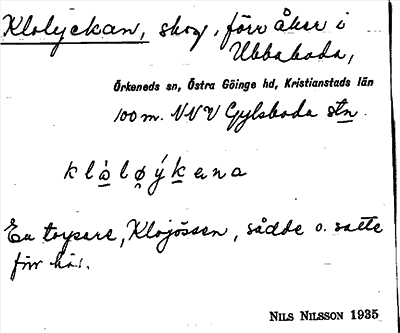 Klolyckan, skog, förr åker i
Ubbaboda,
Örkeneds sn, Östra Göinge hd, Kristianstads län
100 m. NNV Gylsboda stn.
klὰlo̤ýkana
En torpare, Klojössen, sådde o. satte
förr här.
NILS NILSSON 1935